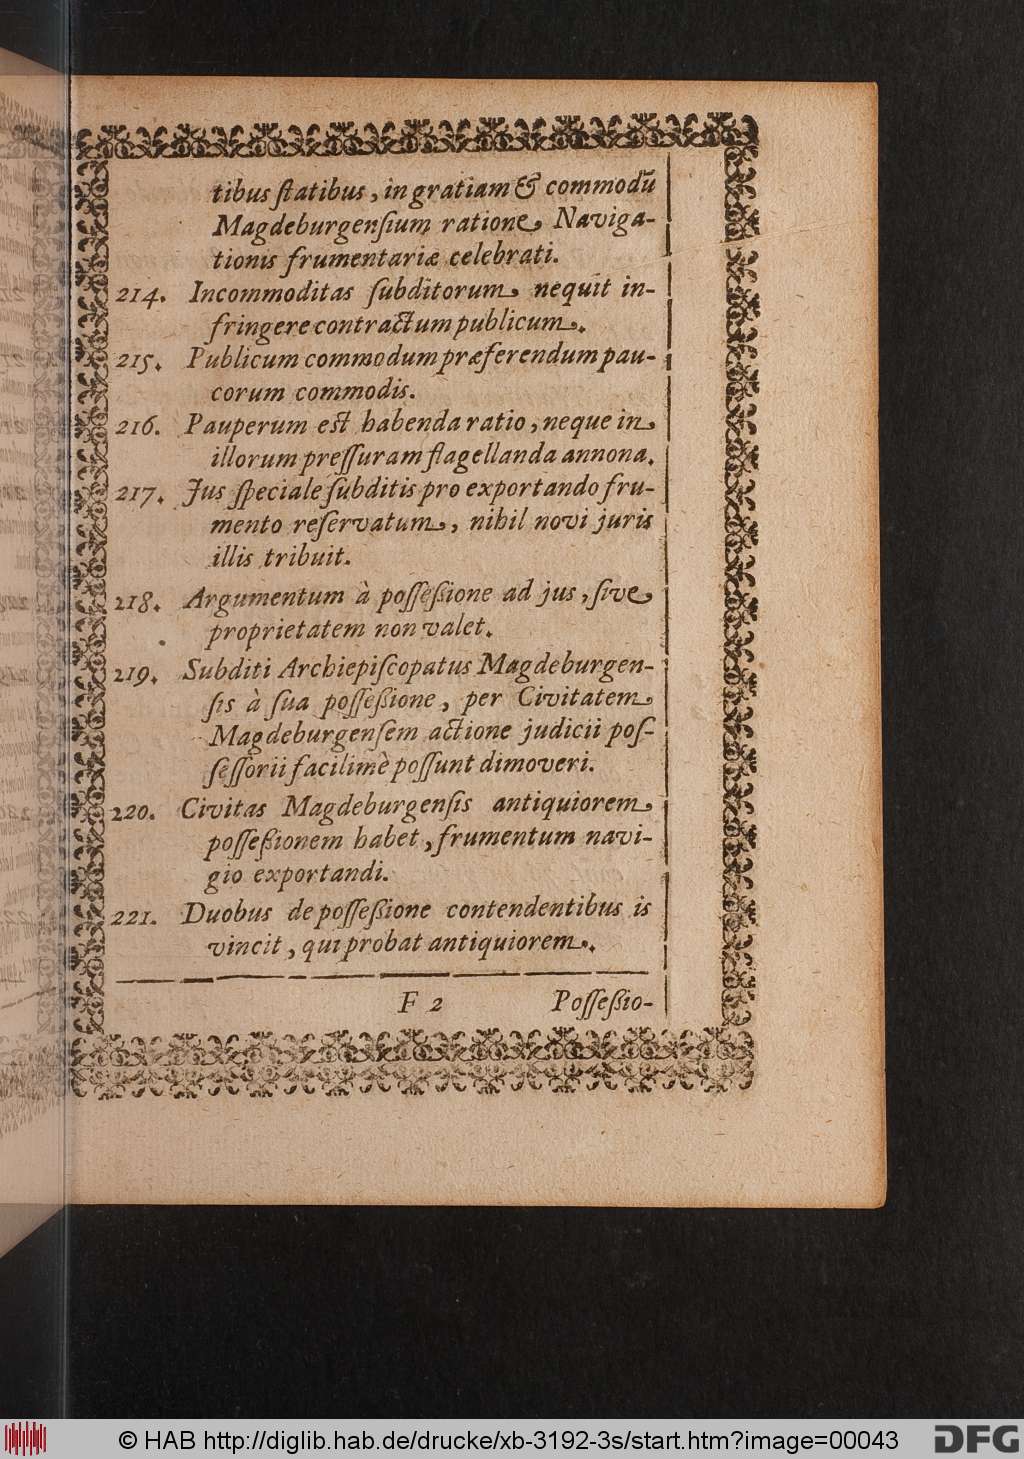 tibus ſtatibus, in gratiam & commodū
Magdeburgenſium ratione Naviga-
tionis frumentariæ celebrati.
214. Incommoditas ſubditorum nequit in-
fringere contractum publicum.
215. Publicum commodum præferendum pau-
corum commodis.
216. Pauperum est habenda ratio, neque in
illorum preſſuram flagellanda annona.
217. Jus ſpeciale ſubditis pro exportando fru-
mento reſervatum, nihil novi juris
illis tribuit.
218. Argumentum à poſſeßione ad jus, ſive
proprietatem non valet.
219. Subditi Archiepiſcopatus Magdeburgen-
ſis à ſua poſſeßione, per Civitatem
Magdeburgenſem actione judicii poſ-
ſeſſorii facilimè poſſunt dimoveri.
220. Civitas Magdeburgenſis antiquiorem
poſſeßionem habet, frumentum navi-
gio exportandi.
221. Duobus de poſſeßione contendentibus is
vincit, qui probat antiquiorem.
F 2 Poſſeßio-
© HAB http://diglib.hab.de/drucke/xb-3192-3s/start.htm?image=00043
DFG